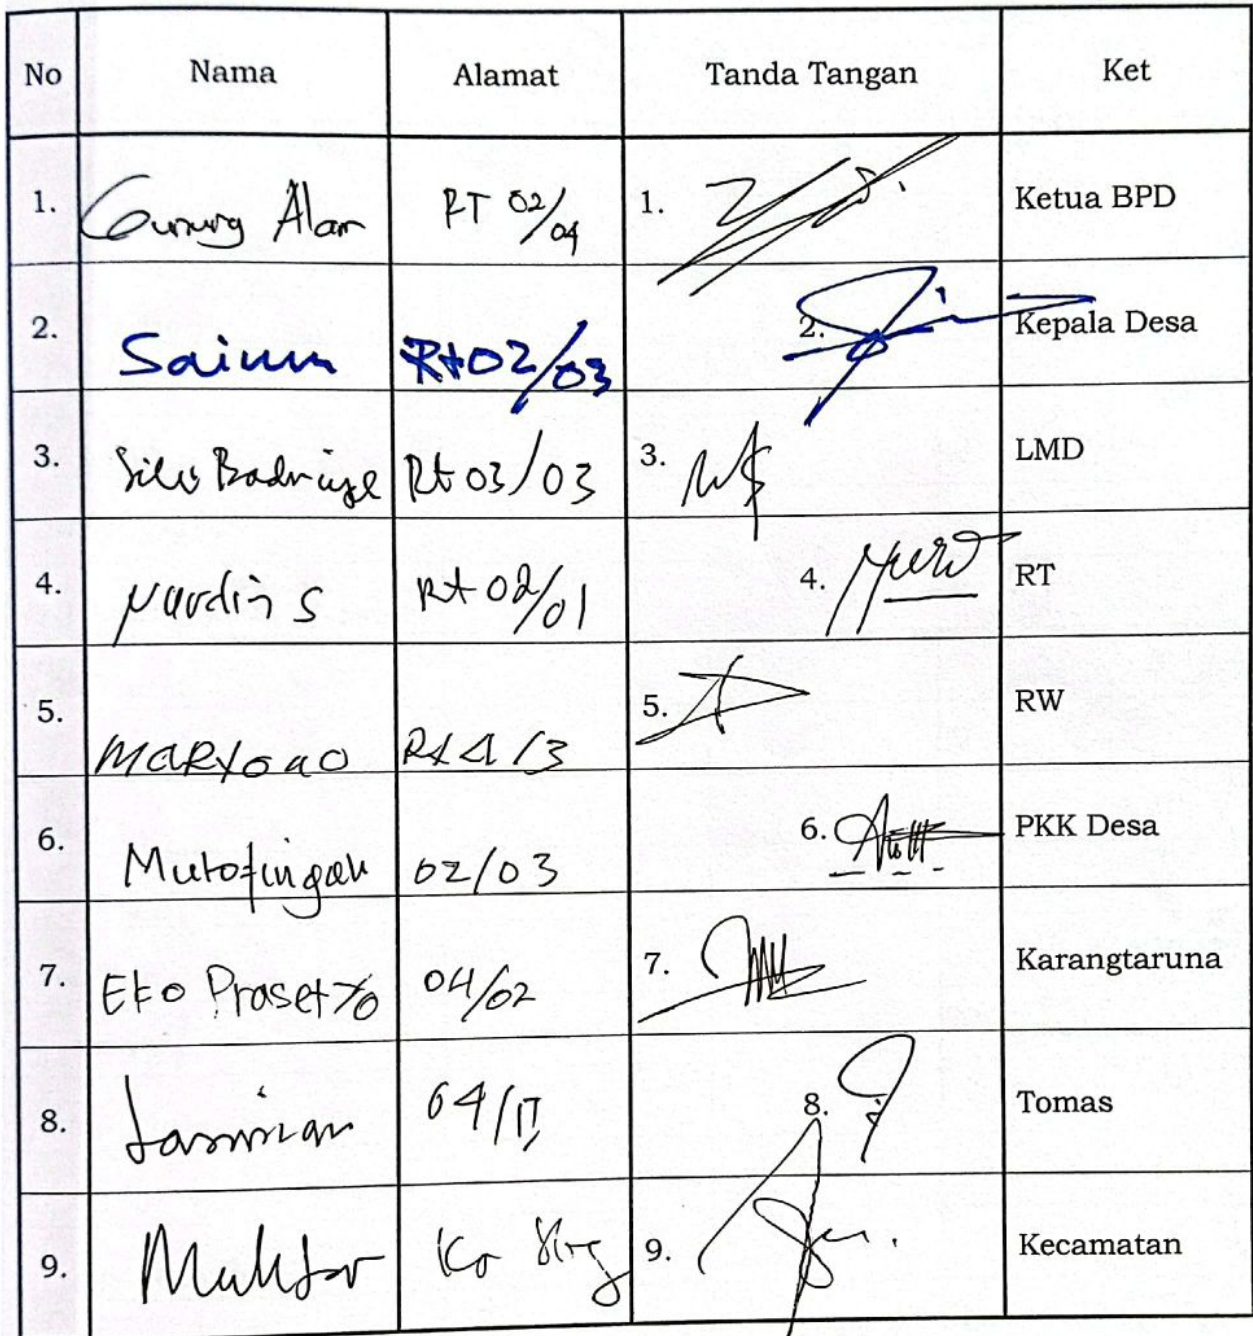 No Nama Alamat Tanda Tangan Ket
1. Gunung Alam RT 02/04 1. Ketua BPD
2. Rt 02/03 2. Kepala Desa
3. Rt 03/03 3. LMD
4. Nurdin S Rt 02/01 4. RT
5. MARYONO Rt 4/3 5. RW
6. 02/03 6. PKK Desa
7. Eko Prasetyo 04/02 7. Karangtaruna
8. 04/II 8. Tomas
9. Muhtar 9. Kecamatan